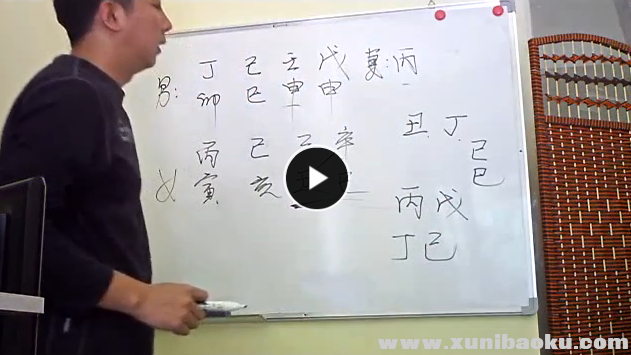 男: 丁 己 壬 戊 丙
卯 巳 申 申
丑 丁
己
巳
丙 己 辛
女 寅 亥
丙 戊
丁 己
www.xunibaoku.com